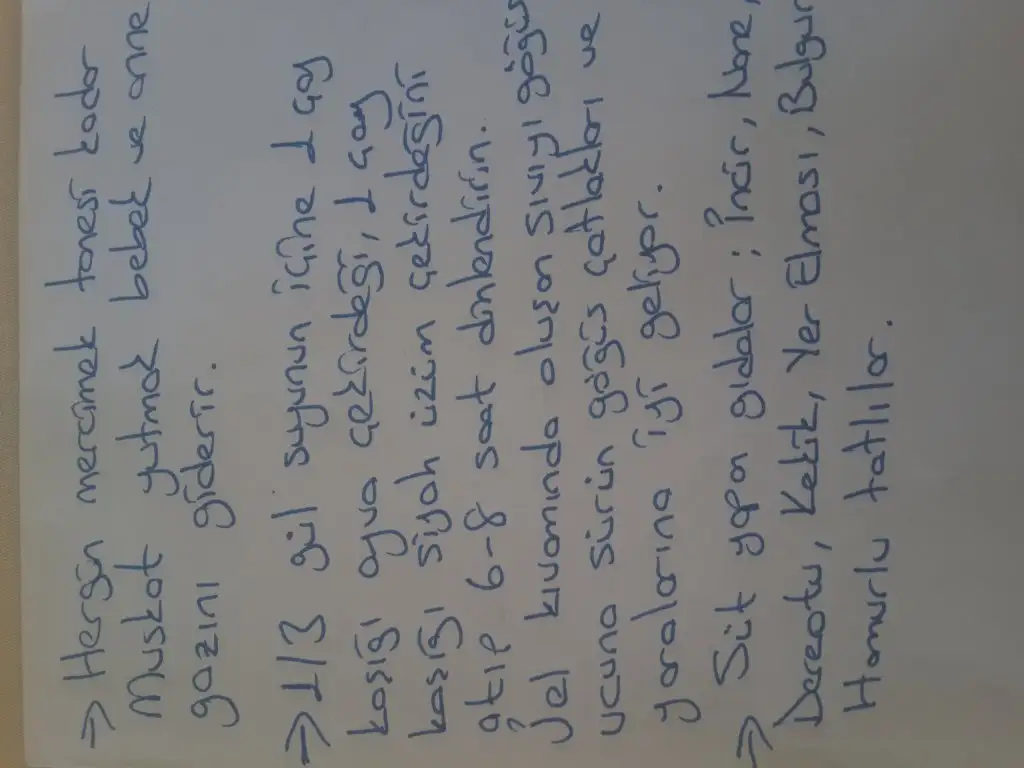 → Hergün mercimek tanesi kadar
Muskat yutmak bebek ve anne
gazını giderir.
→ 1/3 gül suyunun içine 1 çay
kaşığı ayva çekirdeği, 1 çay
kaşığı siyah üzüm çekirdeğini
atıp 6-8 saat dinlendirin.
jel kıvamında oluşan sıvıyı göğüs
ucuna sürün göğüs çatlakları ve
yaralarına iyi geliyor.
→ Süt yapan gıdalar; İncir, Nane,
Dereotu, Kekik, Yer Elması, Bulgur
Hamurlu tatlılar.